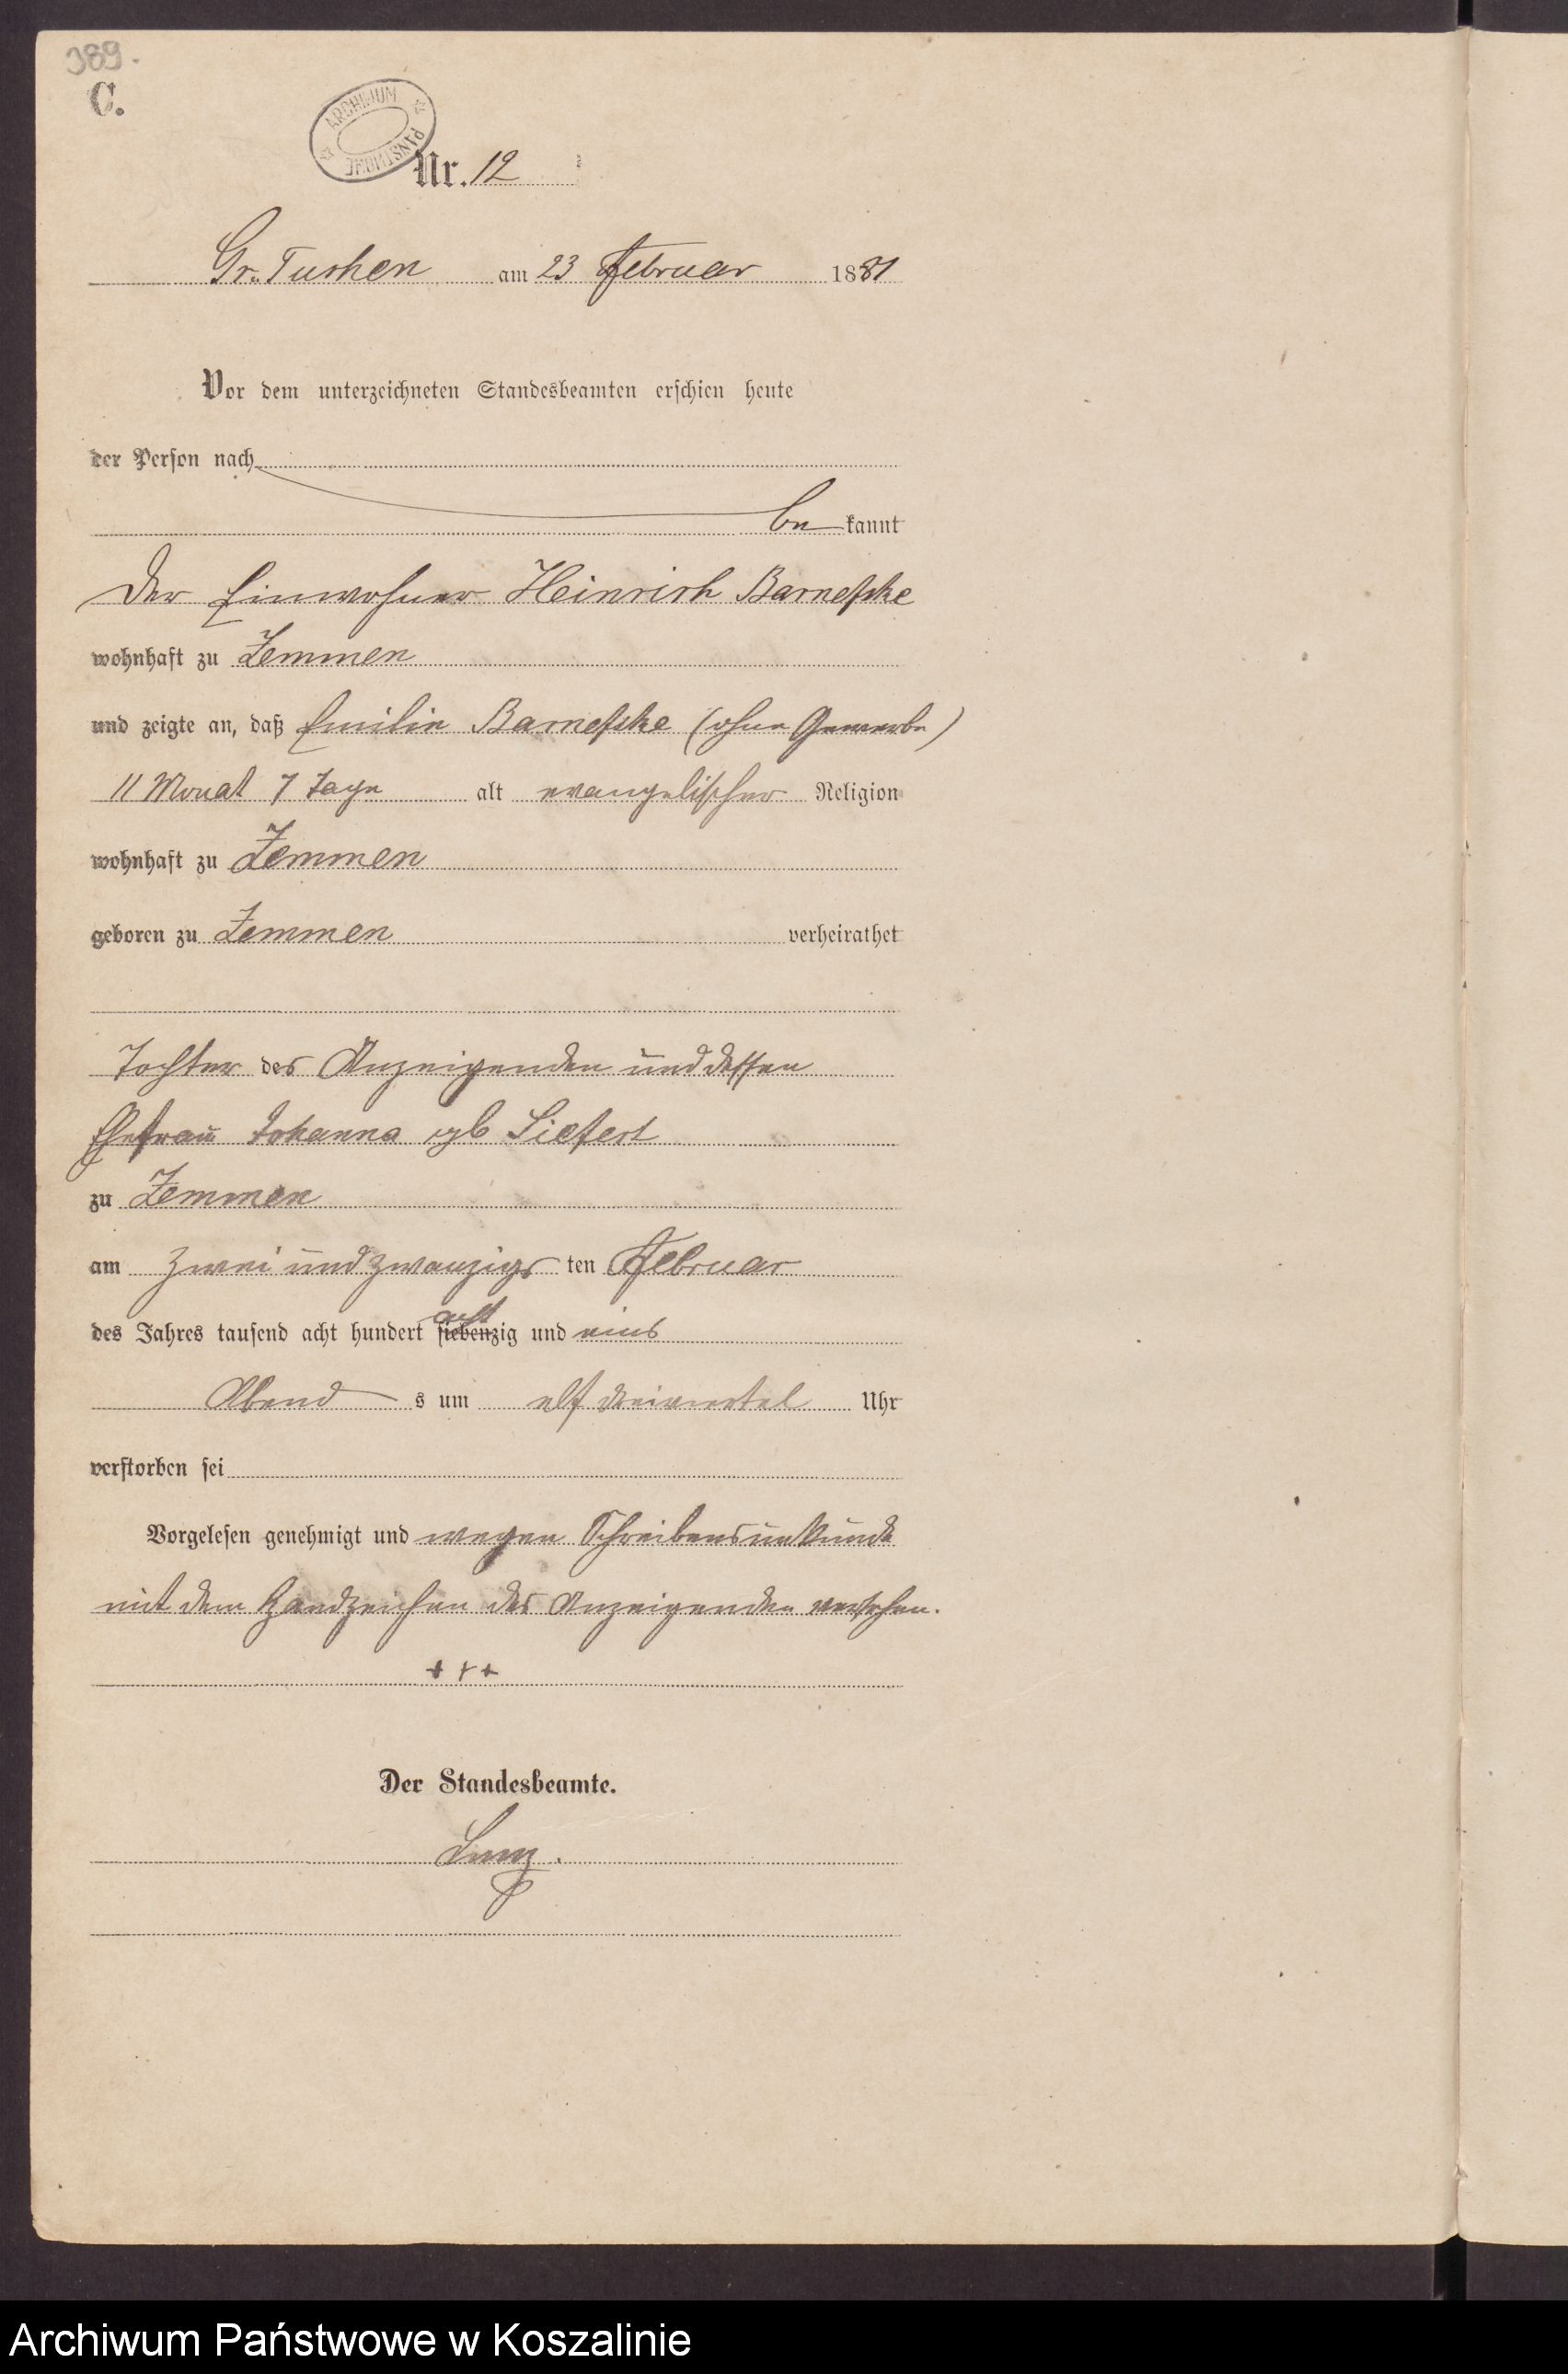 389.
C.
ARCHIWUM PAŃSTWOWE
Nr. 12
Gr. Tuchen am 23 Februar 1881
Vor dem unterzeichneten Standesbeamten erschien heute
der Person nach
be kannt
der Einwohner Heinrich Barneske
wohnhaft zu Zemmen
und zeigte an, daß Emilie Barneske (ohne Gewerbe)
11 Monat 7 Tage alt evangelischer Religion
wohnhaft zu Zemmen
geboren zu Zemmen verheirathet
Tochter des Anzeigenden und dessen
Ehefrau Johanna gb Siefert
zu Zemmen
am zwei und zwanzigs ten Februar
des Jahres tausend acht hundert siebenzig acht und eins
Abend s um elf dreiviertel Uhr
verstorben sei
Vorgelesen genehmigt und wegen Schreibensunkunde
mit dem Handzeichen des Anzeigenden versehen.
+++
Der Standesbeamte.
Archiwum Państwowe w Koszalinie